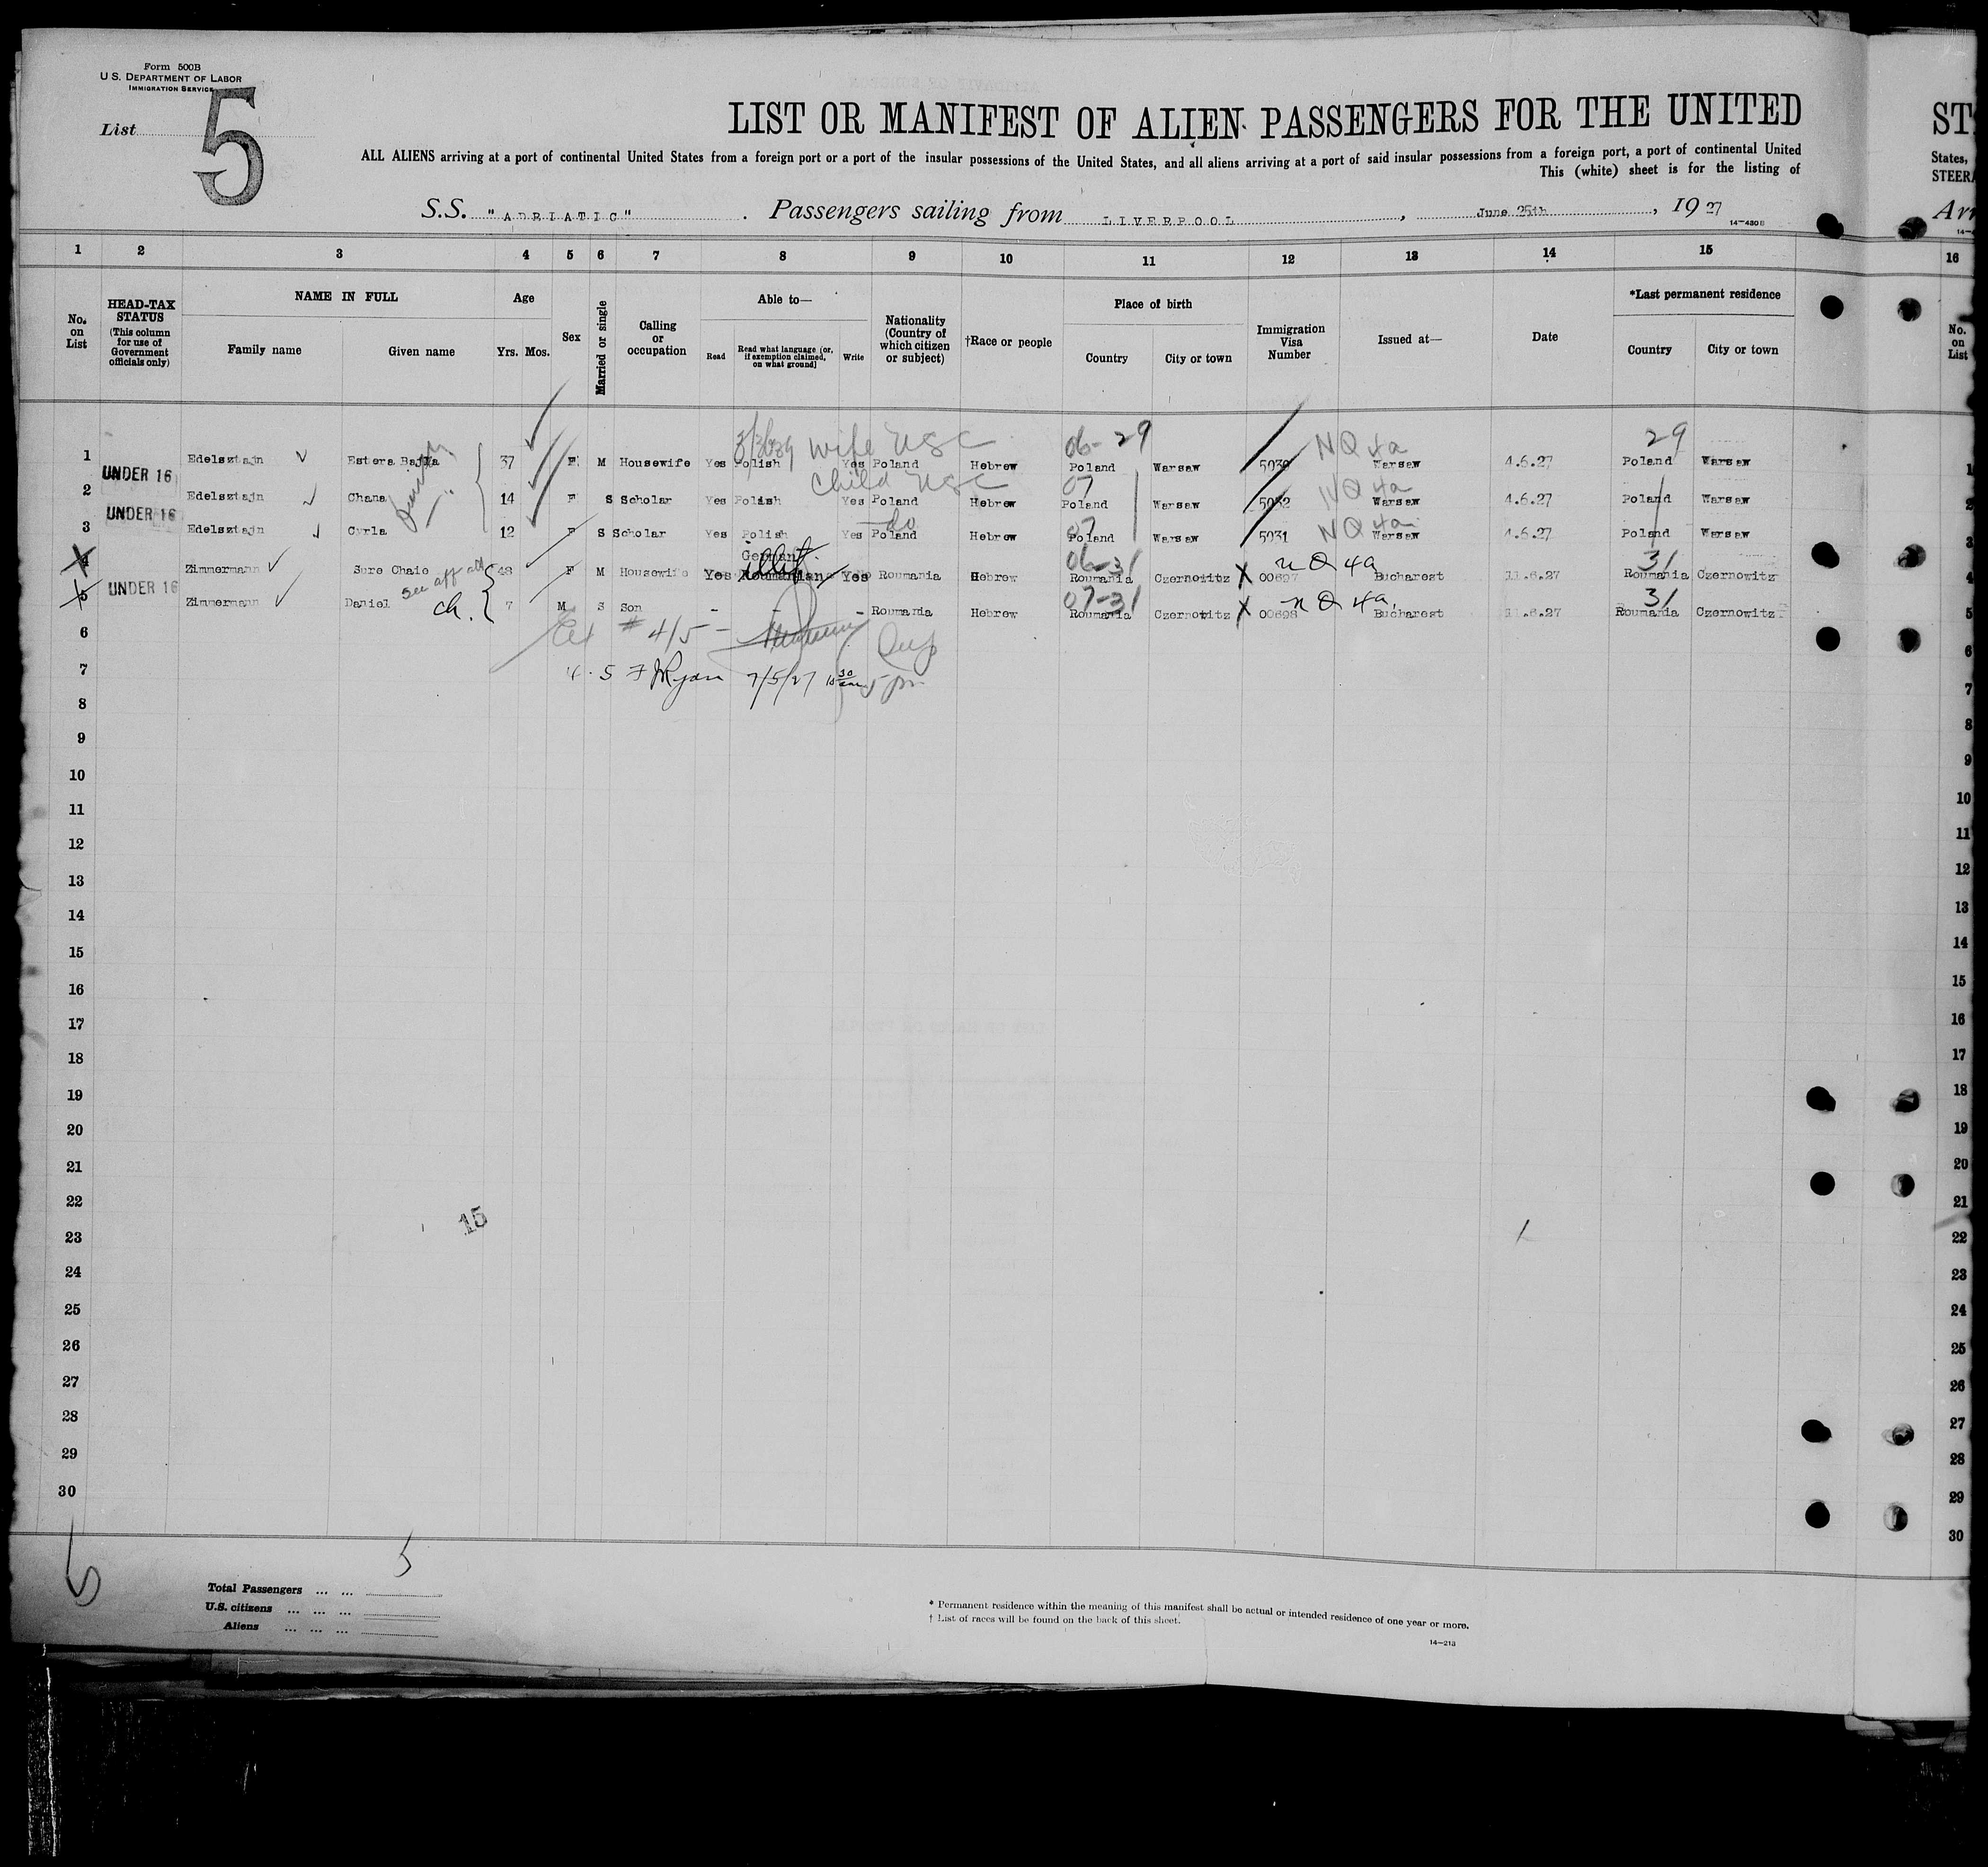 Form 500B
U.S. DEPARTMENT OF LABOR
IMMIGRATION SERVICE
List 5
LIST OR MANIFEST OF ALIEN PASSENGERS FOR THE UNITED
ST
ALL ALIENS arriving at a port of continental United States from a foreign port or a port of the insular possessions of the United States, and all aliens arriving at a port of said insular possessions from a foreign port, a port of continental United
States,
This (white) sheet is for the listing of
STEER
S.S. "ADRIATIC" . Passengers sailing from LIVERPOOL, June 25th, 1927
14-430B
1 2 3 4 5 6 7 8 9 10 11 12 13 14 15 16
No. on List
HEAD-TAX STATUS (This column for use of Government officials only)
NAME IN FULL
Family name Given name
Age
Yrs. Mos.
Sex
Married or single
Calling or occupation
Able to—
Read Read what language (or, if exemption claimed, on what ground) Write
Nationality (Country of which citizen or subject)
†Race or people
Place of birth
Country City or town
Immigration Visa Number
Issued at—
Date
*Last permanent residence
Country City or town
No. on List
wife USC 06-29 NQ 4a 29
1 Edelsztajn Estera Bajla 37 F M Housewife Yes Polish Yes Poland Hebrew Poland Warsaw 5030 Warsaw 4.6.27 Poland Warsaw
UNDER 16 child USC 07 NQ 4a
2 Edelsztajn Chana 14 F S Scholar Yes Polish Yes Poland Hebrew Poland Warsaw 5032 Warsaw 4.6.27 Poland Warsaw
UNDER 16 do 07 NQ 4a
3 Edelsztajn Cyrla 12 F S Scholar Yes Polish Yes Poland Hebrew Poland Warsaw 5031 Warsaw 4.6.27 Poland Warsaw
German illit 06-31 n Q 4a 31
4 Zimmermann Sure Chaie 48 F M Housewife Yes Roumanian Yes Roumania Hebrew Roumania Czernowitz 00697 Bucharest 11.6.27 Roumania Czernowitz
see aff att
UNDER 16 07-31 n Q 4a 31
5 Zimmermann Daniel ch. 7 M S Son - - - Roumania Hebrew Roumania Czernowitz 00698 Bucharest 11.6.27 Roumania Czernowitz
6 # 4/5 -
7 4.5 F J Ryan 7/5/27 10 30 am 5 pm
8
9
10
11
12
13
14
15
16
17
18
19
20
21
22
15
23
24
25
26
27
28
29
30
5 5
Total Passengers ... ...
U.S. citizens ... ... ...
Aliens ... ... ...
* Permanent residence within the meaning of this manifest shall be actual or intended residence of one year or more.
† List of races will be found on the back of this sheet.
14-213